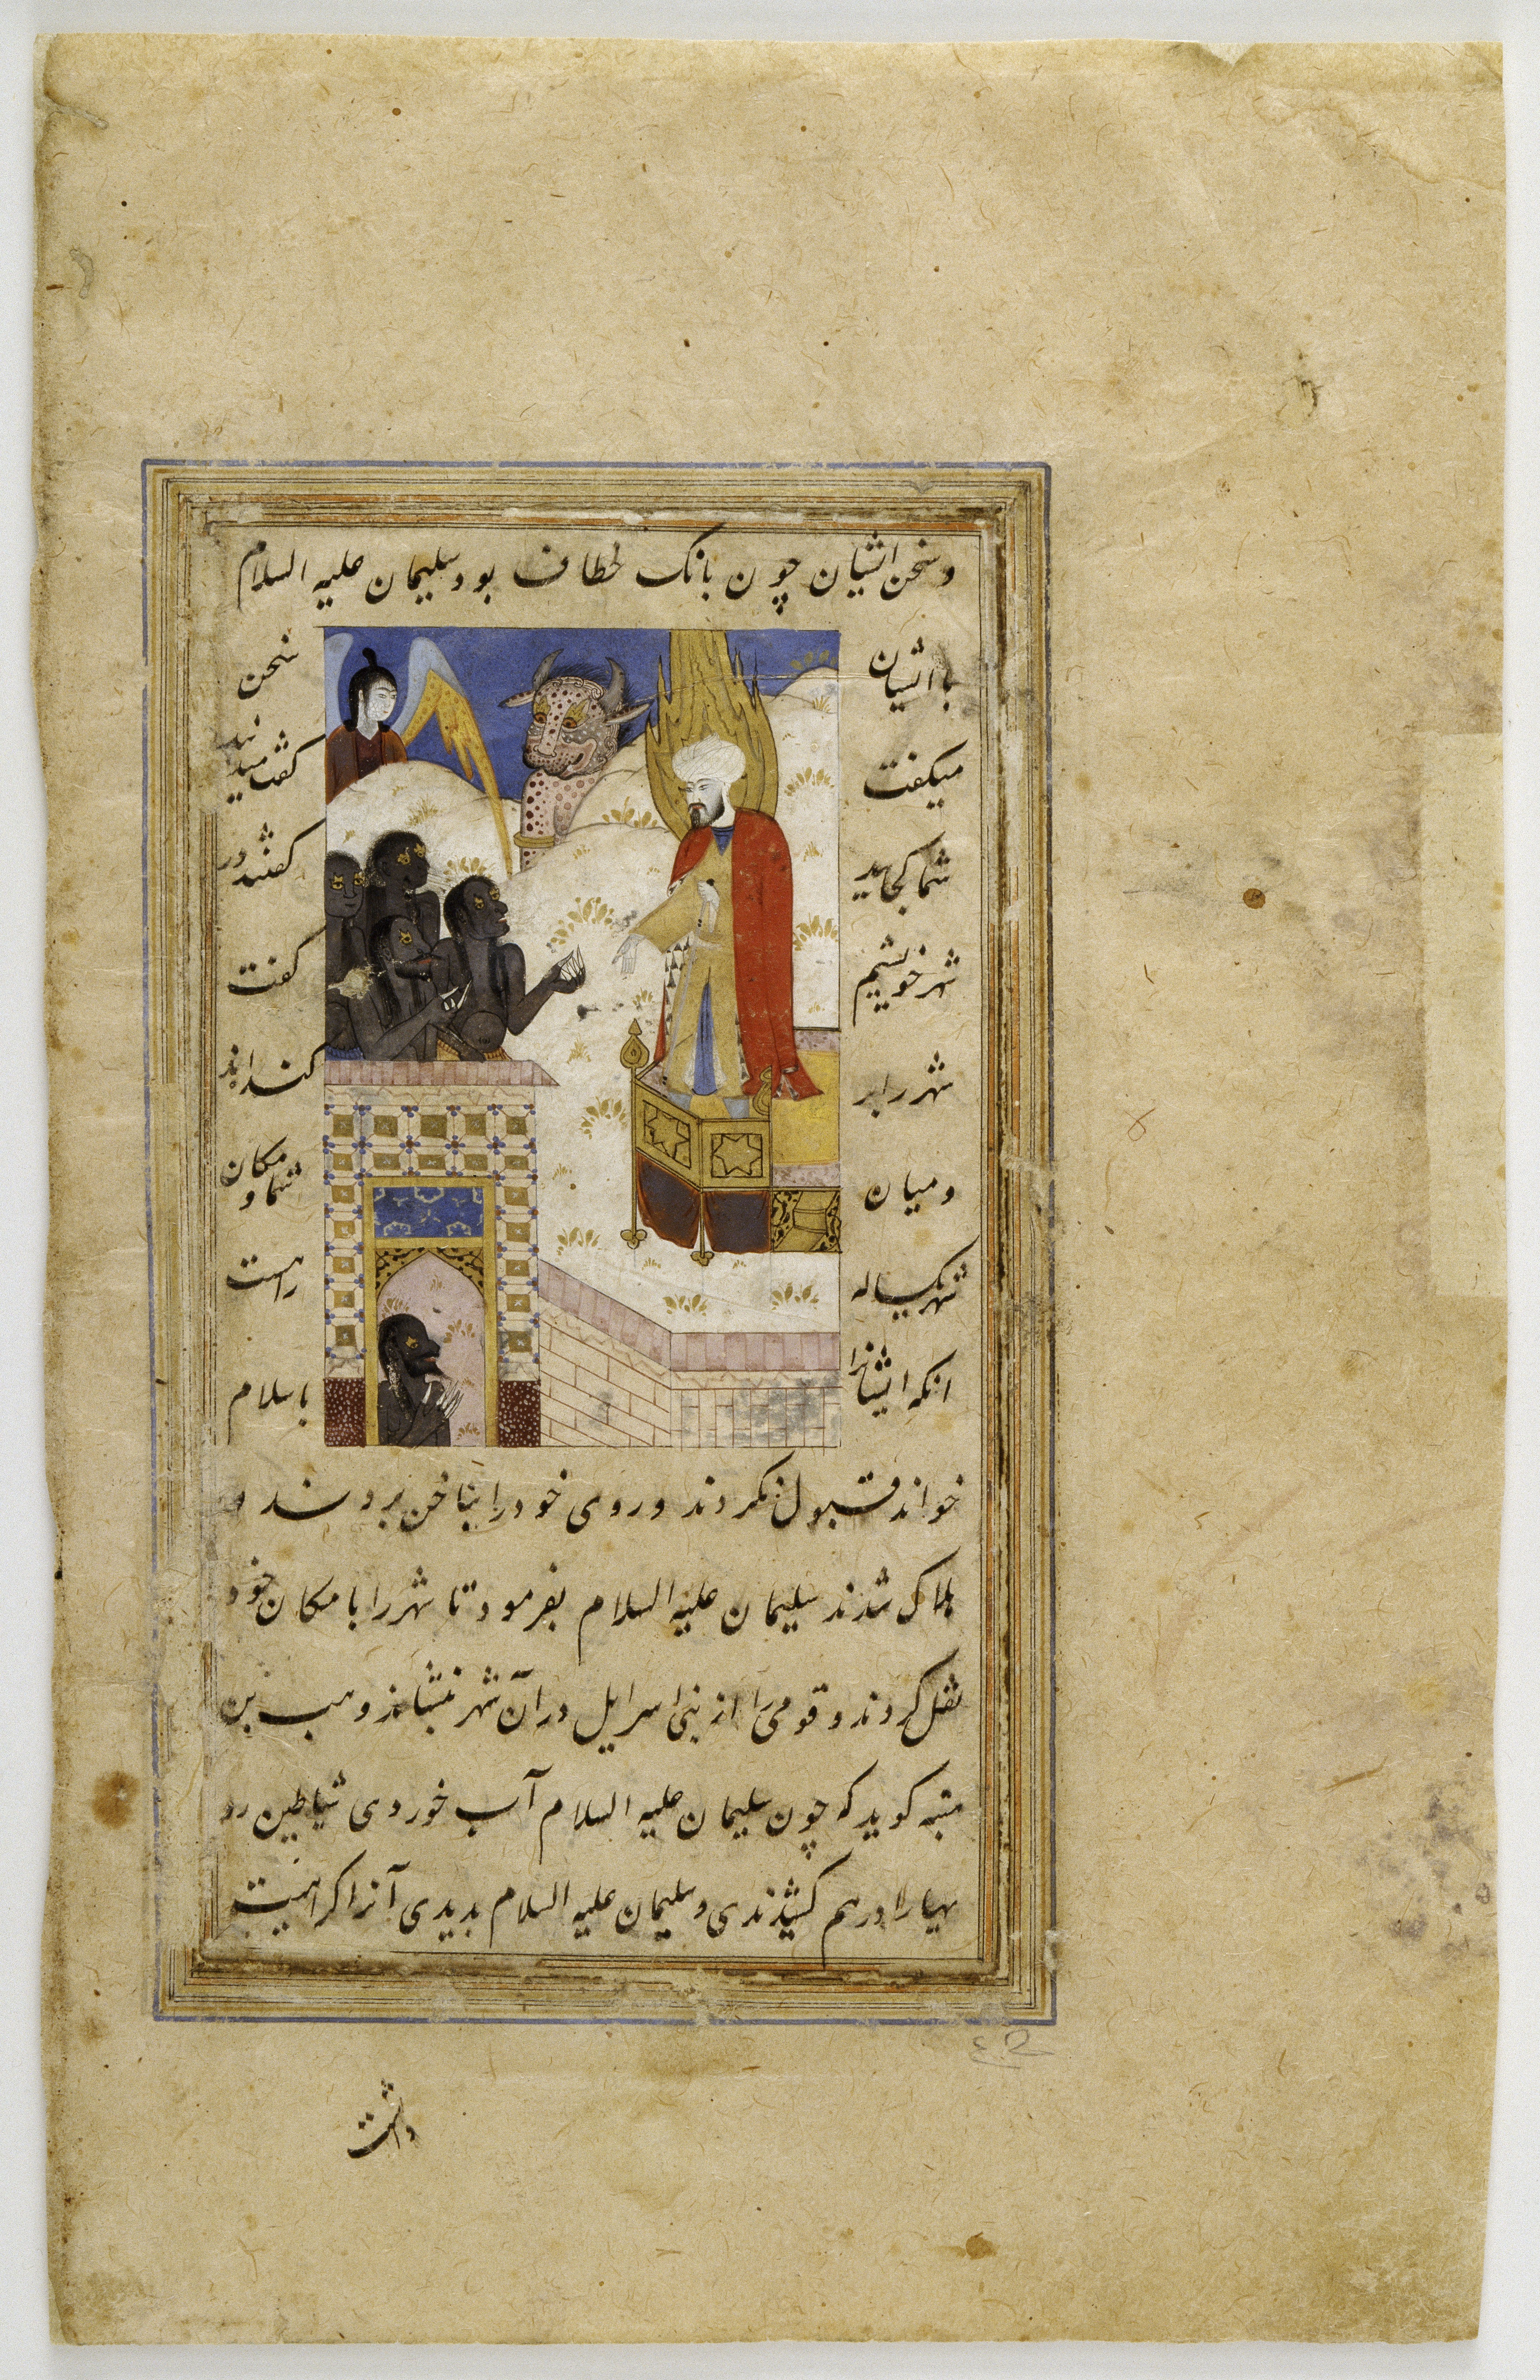 و سخن ایشیان چون بانک خطاف بود سلیمان علیه السلام
با ایشیان سخن
میکفت کفت میدانید
شما کجایید کفتند در
شهر خویشیم کفت
شهر را بر کنده اند
و میان شما و مکان
شهر یکساله راهست
انکه ایشانرا باسلام
خواند قبول نکردند و روی خود را بناخن بردند و
هلاک شدند سلیمان علیه السلام بفرمود تا شهر را با مکان خود
نقل کردند و قومی را از بنی اسرایل در آن شهر بنشاند و هب بن
منبه کوید که چون سلیمان علیه السلام آب خوردی شیاطین رو
یها را در هم کشیدندی و سلیمان علیه السلام بدیدی آنرا کراهیت
داشت